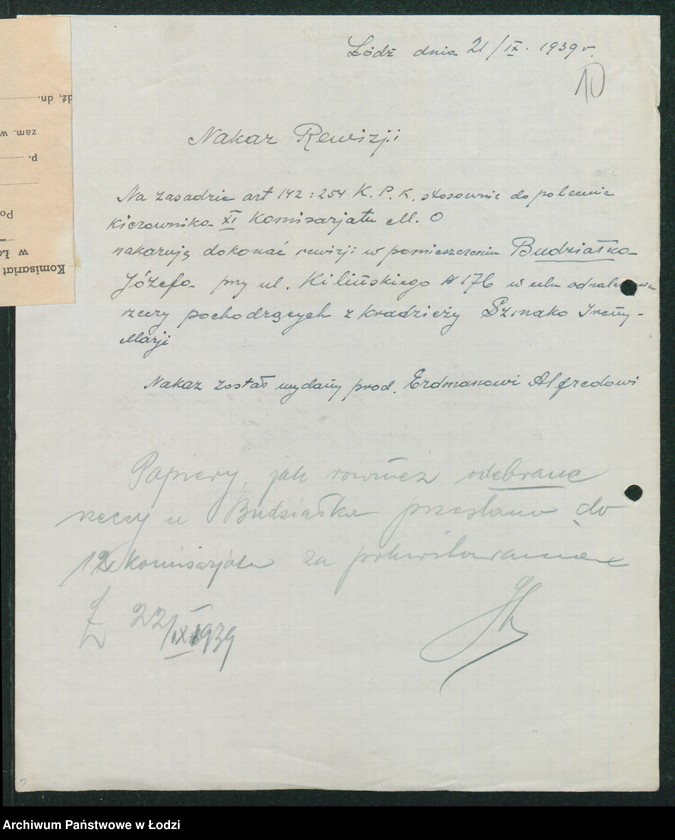 Łódź dnia 21/IX. 1939 r.
10
Nakaz Rewizji
Na zasadzie art 142 i 254 K. P. K. stosownie do polecenia
kierownika XI Komisarjatu M. O
nakazuję dokonać rewizji w pomieszczeniu Budziałka
Józefa przy ul. Kilińskiego № 176 w celu
rzeczy pochodzących z kradzieży Ireny-
Marji
Nakaz został wydany przod. Erdmanowi Alfredowi
Papiery, jak również odebrane
rzeczy u Budziałka przesłano do
12 komisarjatu za pokwitowaniem
Ł 22/IX 1939
dź, dn.
zam. w
p.
Po
w Ł
Komisariat
Archiwum Państwowe w Łodzi